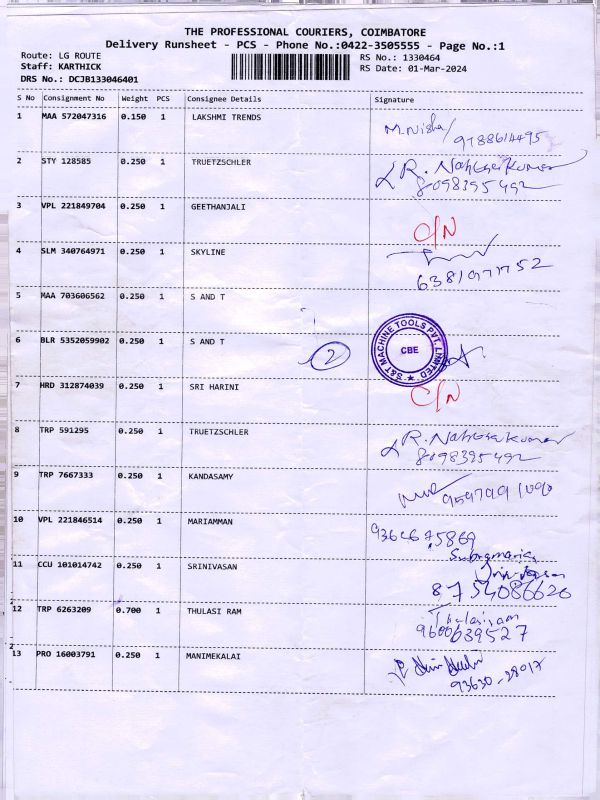 THE PROFESSIONAL COURIERS, COIMBATORE
Delivery Runsheet - PCS - Phone No.:0422-3505555 - Page No.:1
Route: LG ROUTE
RS No.: 1330464
Staff: KARTHICK
RS Date: 01-Mar-2024
DRS No.: DCJB133046401
S No Consignment No Weight PCS Consignee Details Signature
1 MAA 572047316 0.150 1 LAKSHMI TRENDS M.Nisha/
9188614495
2 STY 128585 0.250 1 TRUETZSCHLER R.
8098395492
3 VPL 221849704 0.250 1 GEETHANJALI C/N
4 SLM 340764971 0.250 1 SKYLINE
5 MAA 703606562 0.250 1 S AND T
6 BLR 5352059902 0.250 1 S AND T 2
S&T MACHINE TOOLS PVT. LIMITED
CBE
7 HRD 312874039 0.250 1 SRI HARINI C/N
8 TRP 591295 0.250 1 TRUETZSCHLER R.
8098395492
9 TRP 7667333 0.250 1 KANDASAMY
10 VPL 221846514 0.250 1 MARIAMMAN 9364675869
11 CCU 101014742 0.250 1 SRINIVASAN
8754086626
12 TRP 6263209 0.700 1 THULASI RAM Thulasiram
9600639527
13 PRO 16003791 0.250 1 MANIMEKALAI
93630-28017